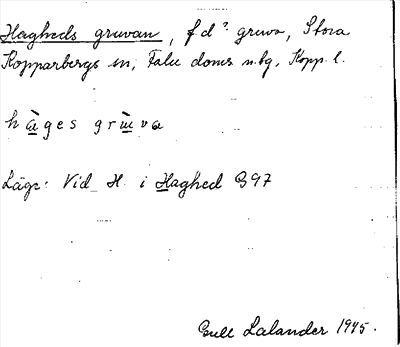 Hagheds gruvan, f d? gruva, Stora
Kopparbergs sn, Falu doms n.bg, Kopp. l.
hàges grùva
Läge: Vid H. i Haghed G 97
Gull Lalander 1945.